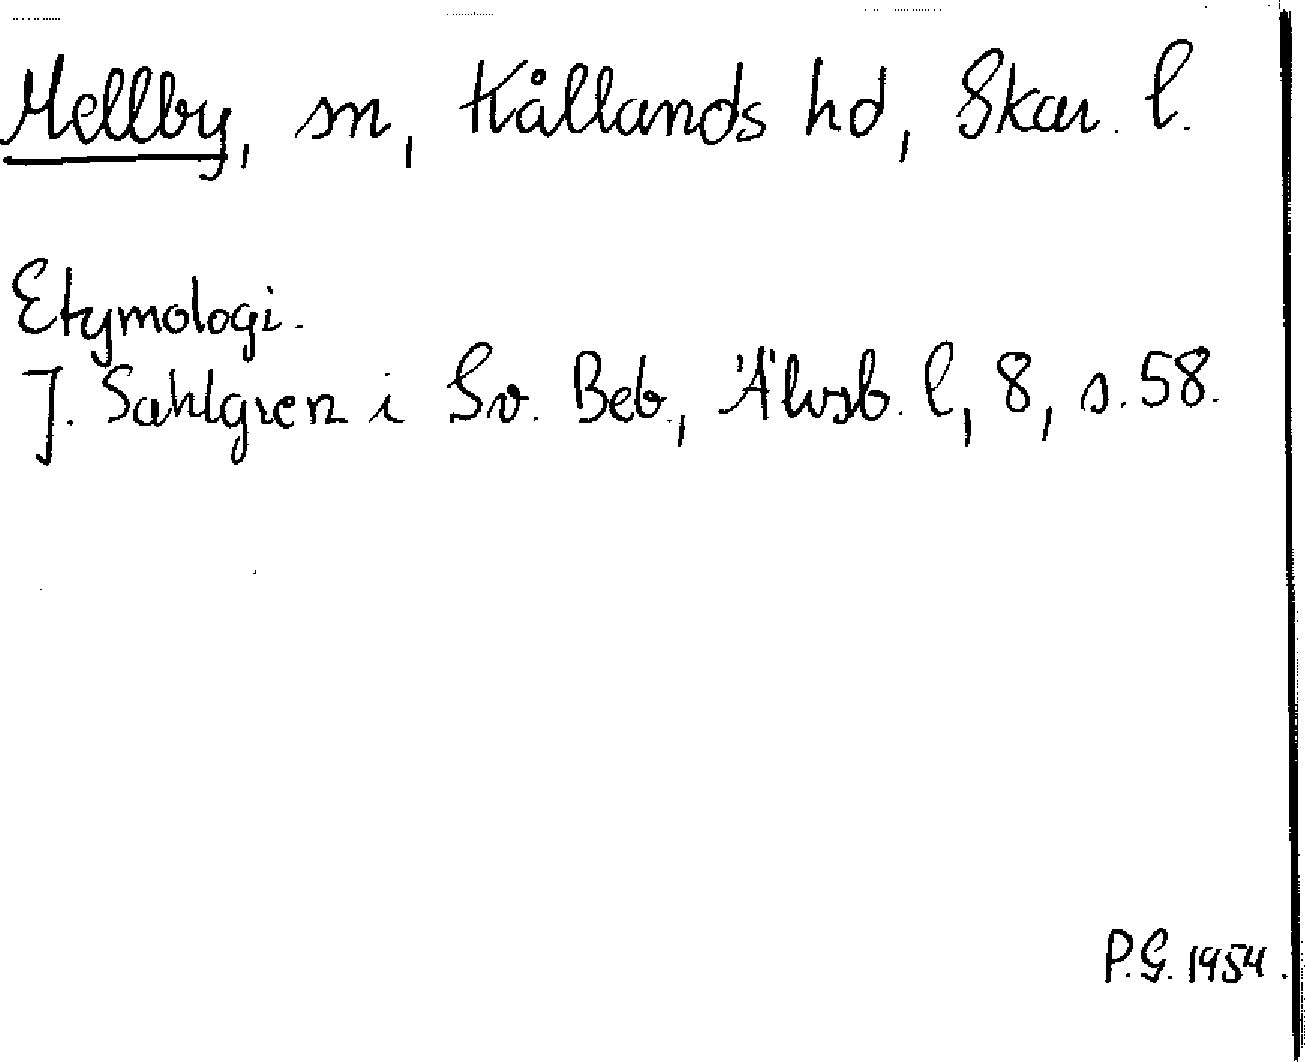 Mellby, sn, Kållands hd, Skar. l.
Etymologi.
J. Sahlgren i Sv. Beb., Älvsb. l, 8, s. 58.
P.G. 1954.